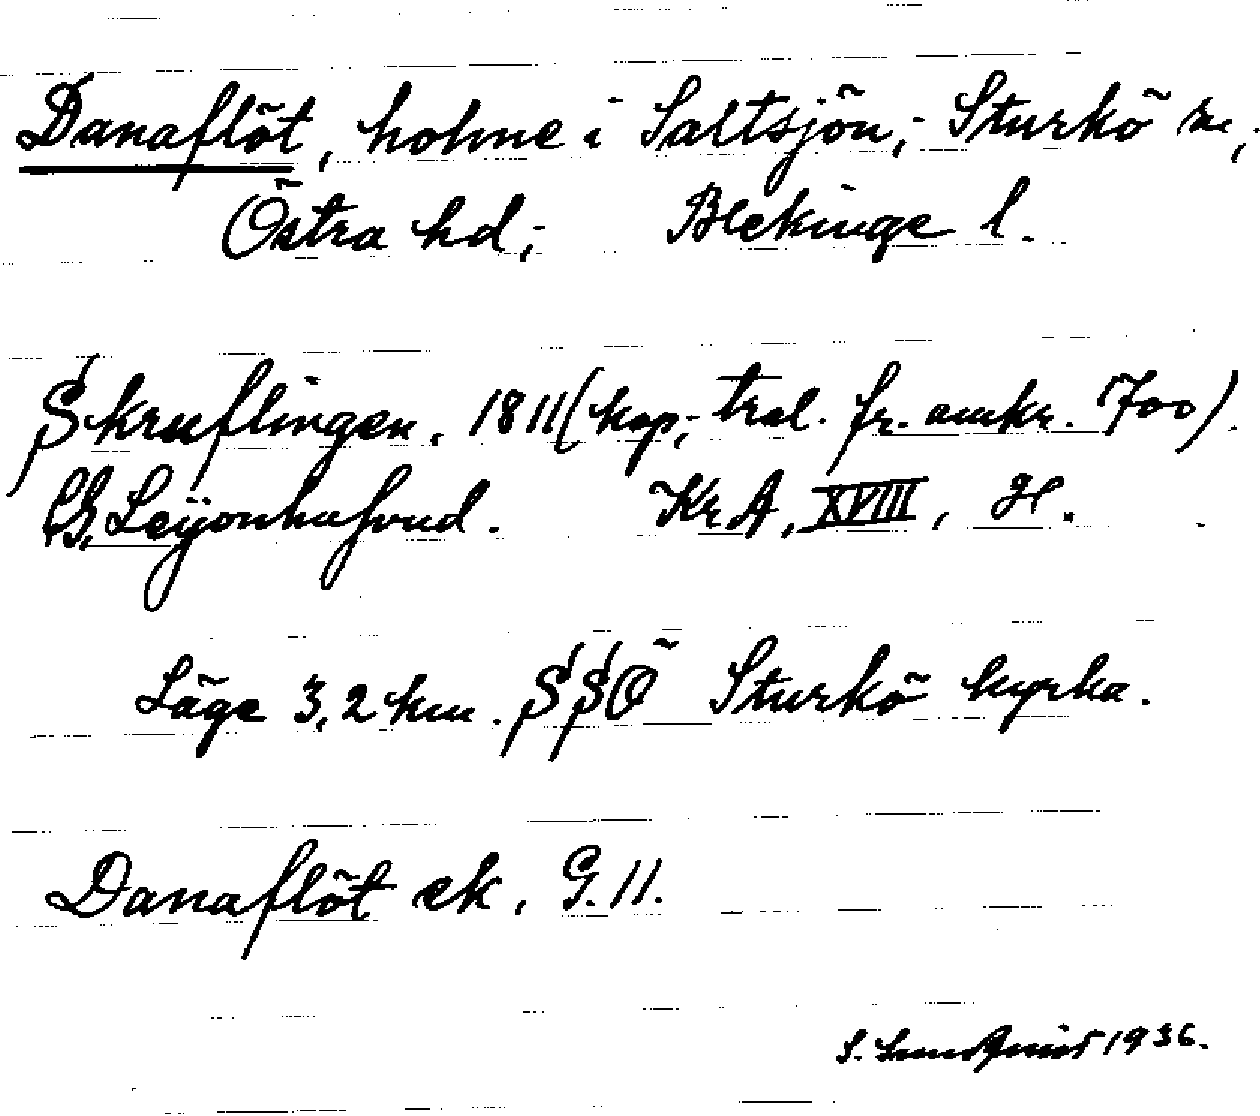 Danaflöt, holme i Saltsjön, Sturkö sn,
Östra hd, Blekinge l.
Skruflingen. 1811 (kop. tral. fr. omkr. 700).
G. Leijonhufvud. KrA, XVIII, H.
Läge 3,2 km. SSÖ Sturkö kyrka.
Danaflöt ek. G.11.
S. Lundquist 1936.